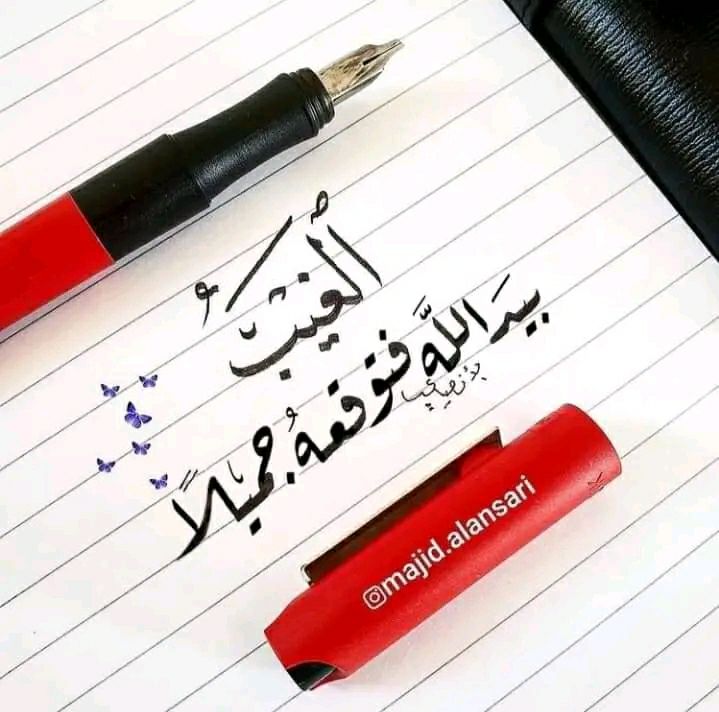 الغيبُ
بيدَ اللَّه فتوقعهُ جميلاً
@majid.alansari